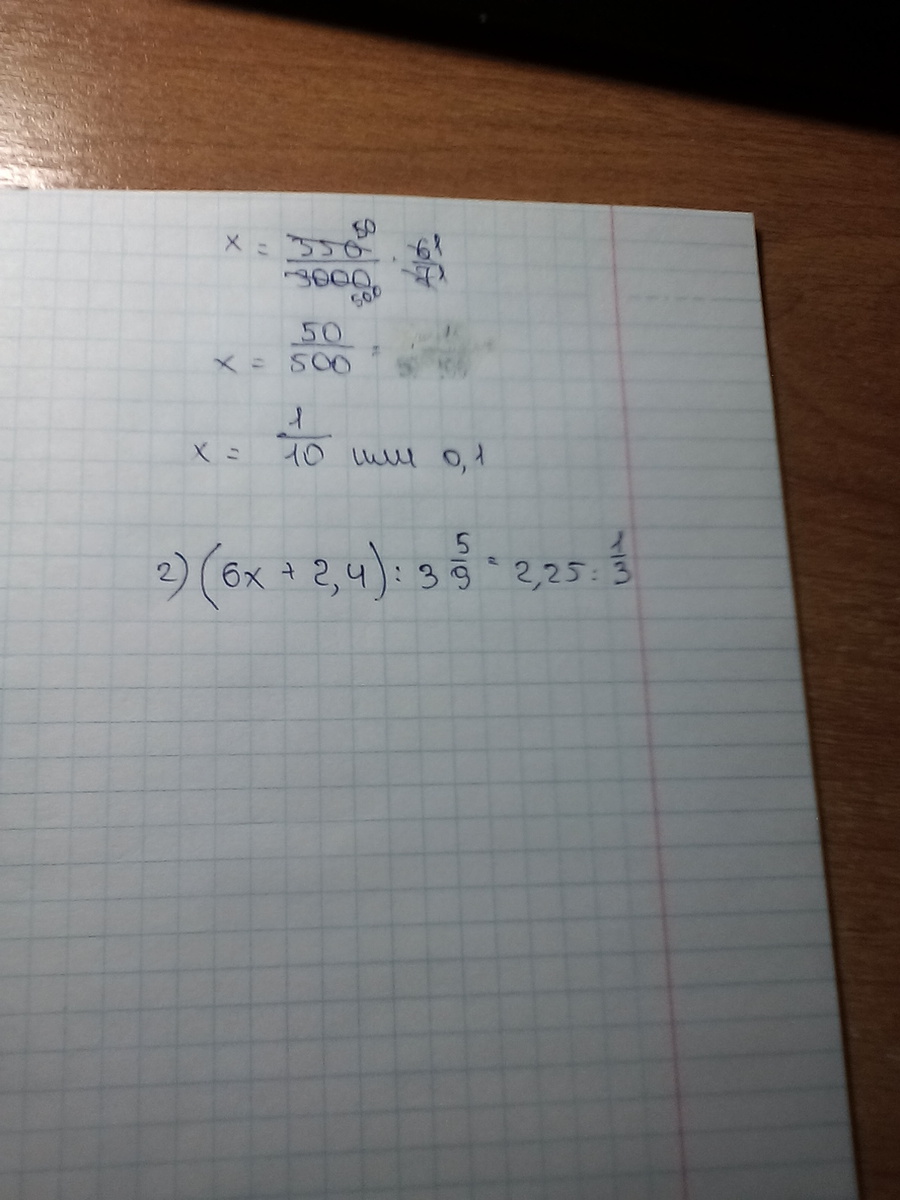 x = 350 50 / 3000 500 · 6 1 / 7 1
x = 50/500 =
x = 1/10 или 0,1
2) (6x + 2,4) : 3 5/9 = 2,25 : 1/3